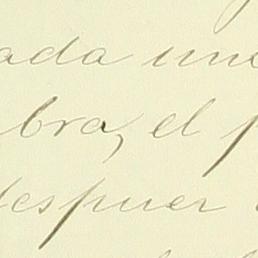 ada una
bra, el p
despues